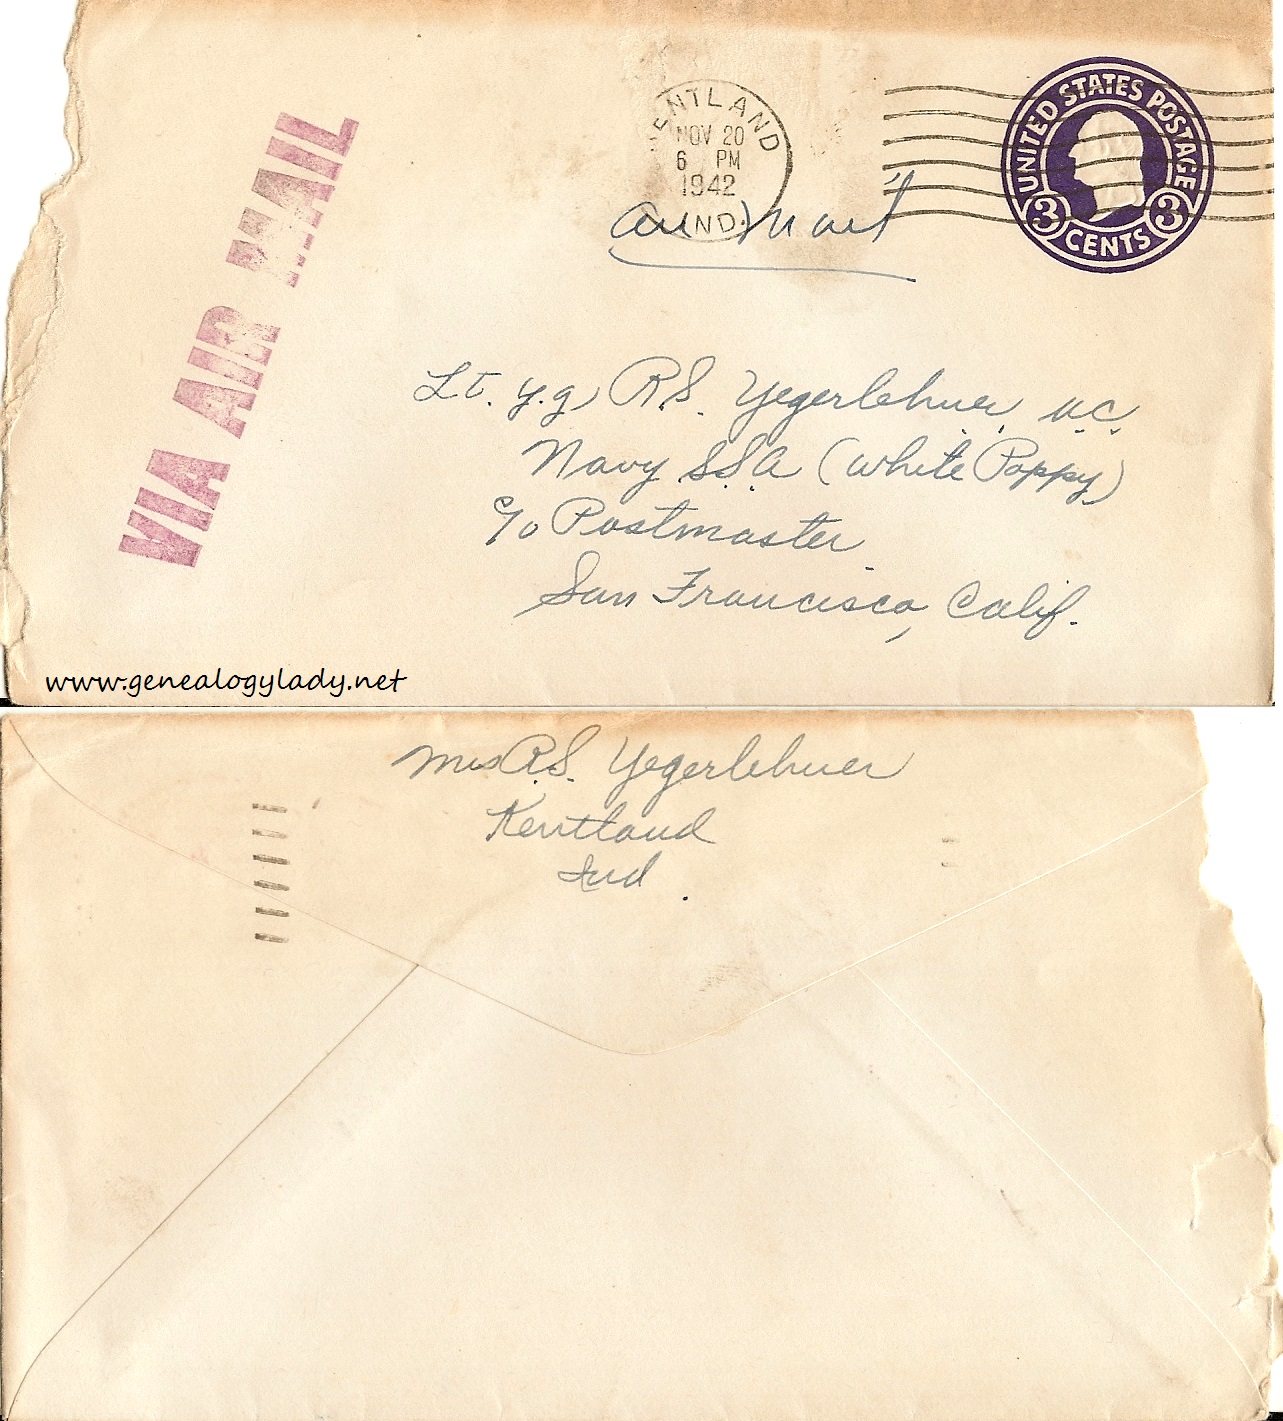 VIA AIR MAIL
KENTLAND
NOV 20
6 PM
1942
IND.
Air Mail
UNITED STATES POSTAGE
3 CENTS 3
Lt. y.g, R.S. Yegerlehner
Navy S.S.A (White Poppy)
c/o Postmaster
San Francisco, Calif.
www.genealogylady.net
Mrs R.S. Yegerlehner
Kentland
Ind.